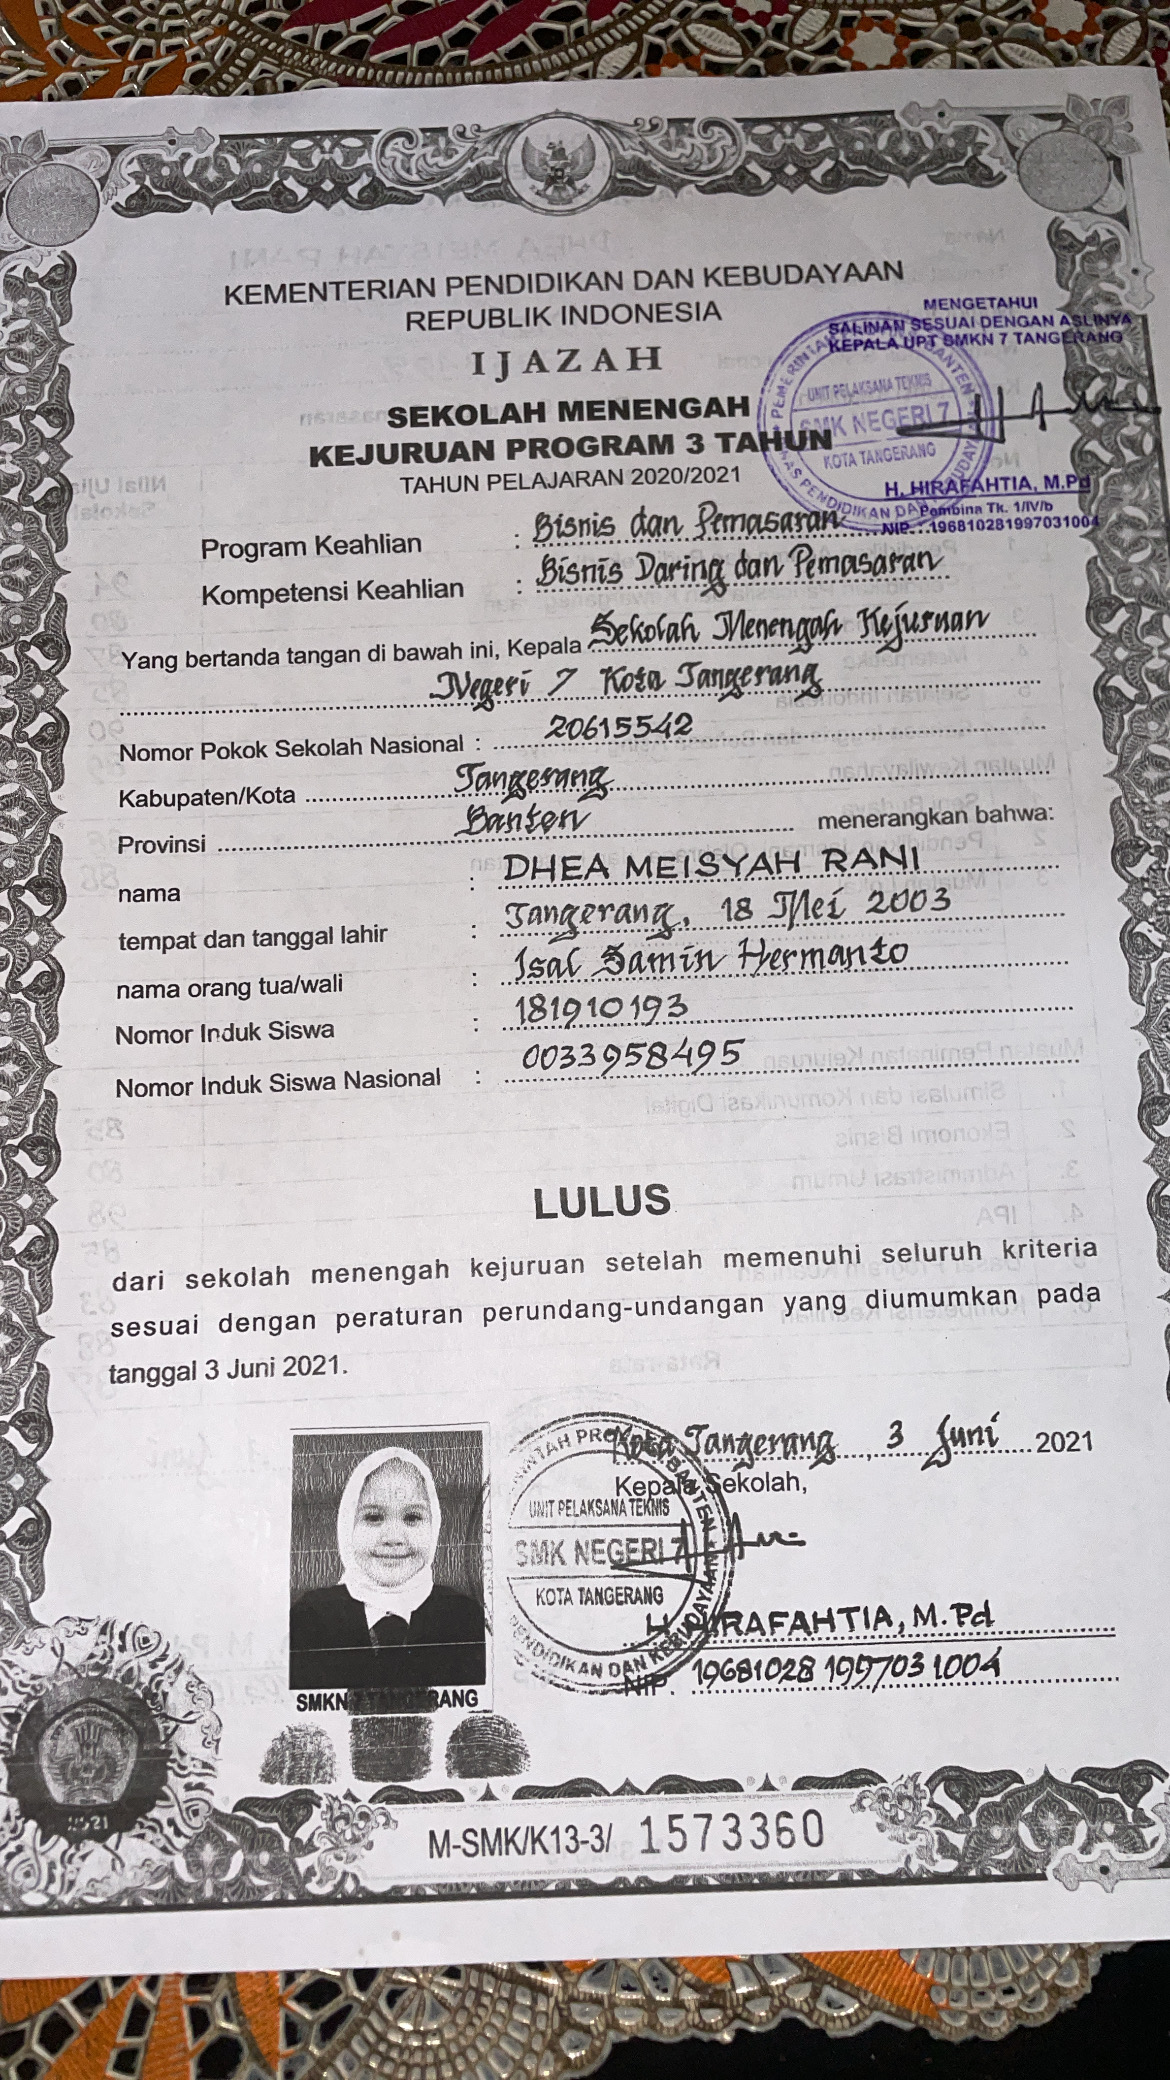 KEMENTERIAN PENDIDIKAN DAN KEBUDAYAAN
REPUBLIK INDONESIA
IJAZAH
SEKOLAH MENENGAH
KEJURUAN PROGRAM 3 TAHUN
TAHUN PELAJARAN 2020/2021
MENGETAHUI
SALINAN SESUAI DENGAN ASLINYA
KEPALA UPT SMKN 7 TANGERANG
UNIT PELAKSANA TEKNIS
SMK NEGERI 7
KOTA TANGERANG
H. HIRAFAHTIA, M.Pd
Pembina Tk. 1/IV/b
NIP. : 196810281997031004
Program Keahlian : Bisnis dan Pemasaran
Kompetensi Keahlian : Bisnis Daring dan Pemasaran
Yang bertanda tangan di bawah ini, Kepala Sekolah Menengah Kejuruan
Negeri 7 Kota Tangerang
Nomor Pokok Sekolah Nasional : 20615542
Kabupaten/Kota Tangerang
Provinsi Banten menerangkan bahwa:
nama : DHEA MEISYAH RANI
tempat dan tanggal lahir : Tangerang, 18 Mei 2003
nama orang tua/wali : Isal Samin Hermanto
Nomor Induk Siswa : 181910193
Nomor Induk Siswa Nasional : 0033958495
LULUS
dari sekolah menengah kejuruan setelah memenuhi seluruh kriteria
sesuai dengan peraturan perundang-undangan yang diumumkan pada
tanggal 3 Juni 2021.
Kota Tangerang, 3 Juni 2021
Kepala Sekolah,
UNIT PELAKSANA TEKNIS
SMK NEGERI 7
KOTA TANGERANG
PENDIDIKAN DAN KEBUDAYAAN
H. HIRAFAHTIA, M.Pd
NIP. 19681028 199703 1004
SMKN 7 TANGERANG
M-SMK/K13-3/ 1573360